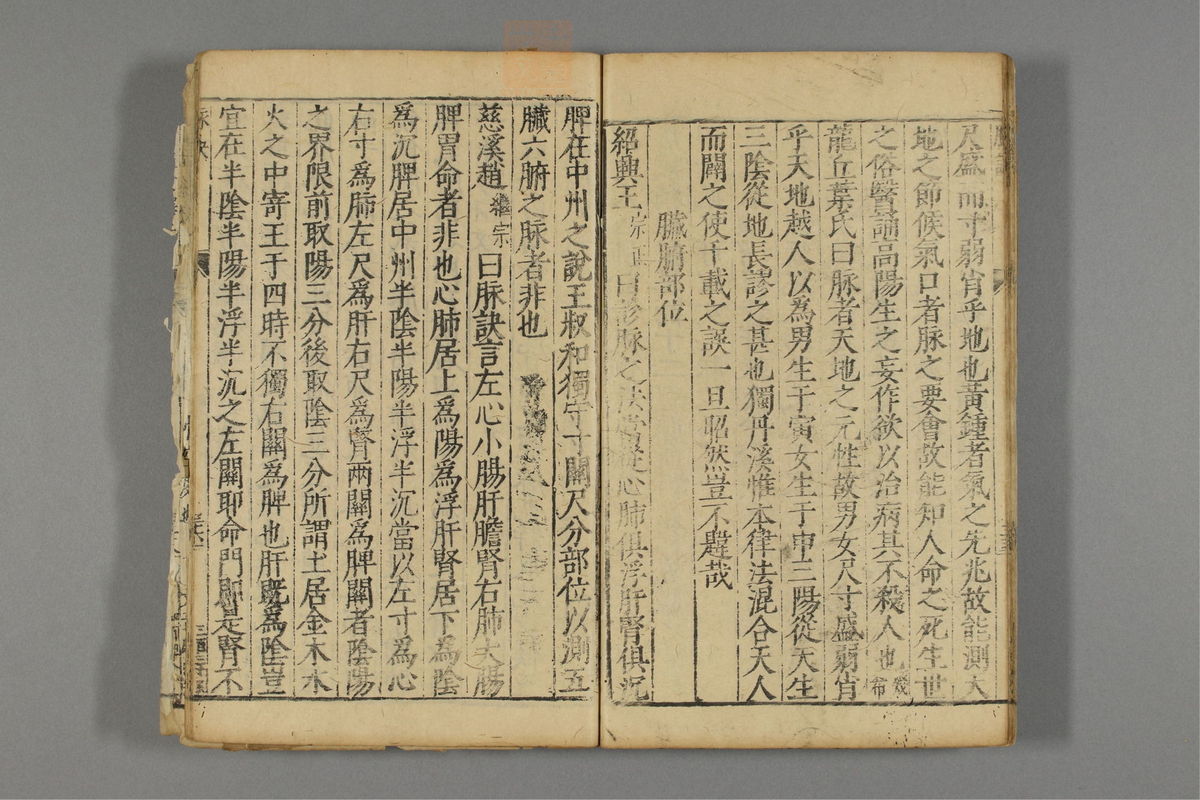 尺盛而寸弱肖乎地也黃鍾者氣之先兆故能測天
地之節候氣口者脉之要會故能知人命之死生世
之俗醫誦高陽生之妄作欲以治病其不殺人也幾希
龍丘葉氏曰脉者天地之元性故男女尺寸盛弱肖
乎天地越人以為男生于寅女生于申三陽從天生
三陰從地長謬之甚也獨丹溪惟本律法混合天人
而闢之使千載之誤一旦昭然豈不韙哉
臟腑部位
紹興王宗正曰診脉之法當從心肺俱浮肝腎俱沉
脾在中州之說王叔和獨守寸關尺分部位以測五
臟六腑之脉者非也
慈溪趙繼宗曰脉訣言左心小腸肝膽腎右肺大腸
脾胃命者非也心肺居上為陽為浮肝腎居下為陰
為沉脾居中州半陰半陽半浮半沉當以左寸為心
右寸爲肺左尺爲肝右尺爲腎兩關爲脾關者陰陽
之界限前取陽三分後取陰三分所謂土居金木水
火之中寄王于四時不獨右關爲脾也肝既爲陰豈
宜在半陰半陽半浮半沉之左關耶命門即是腎不
脉訣